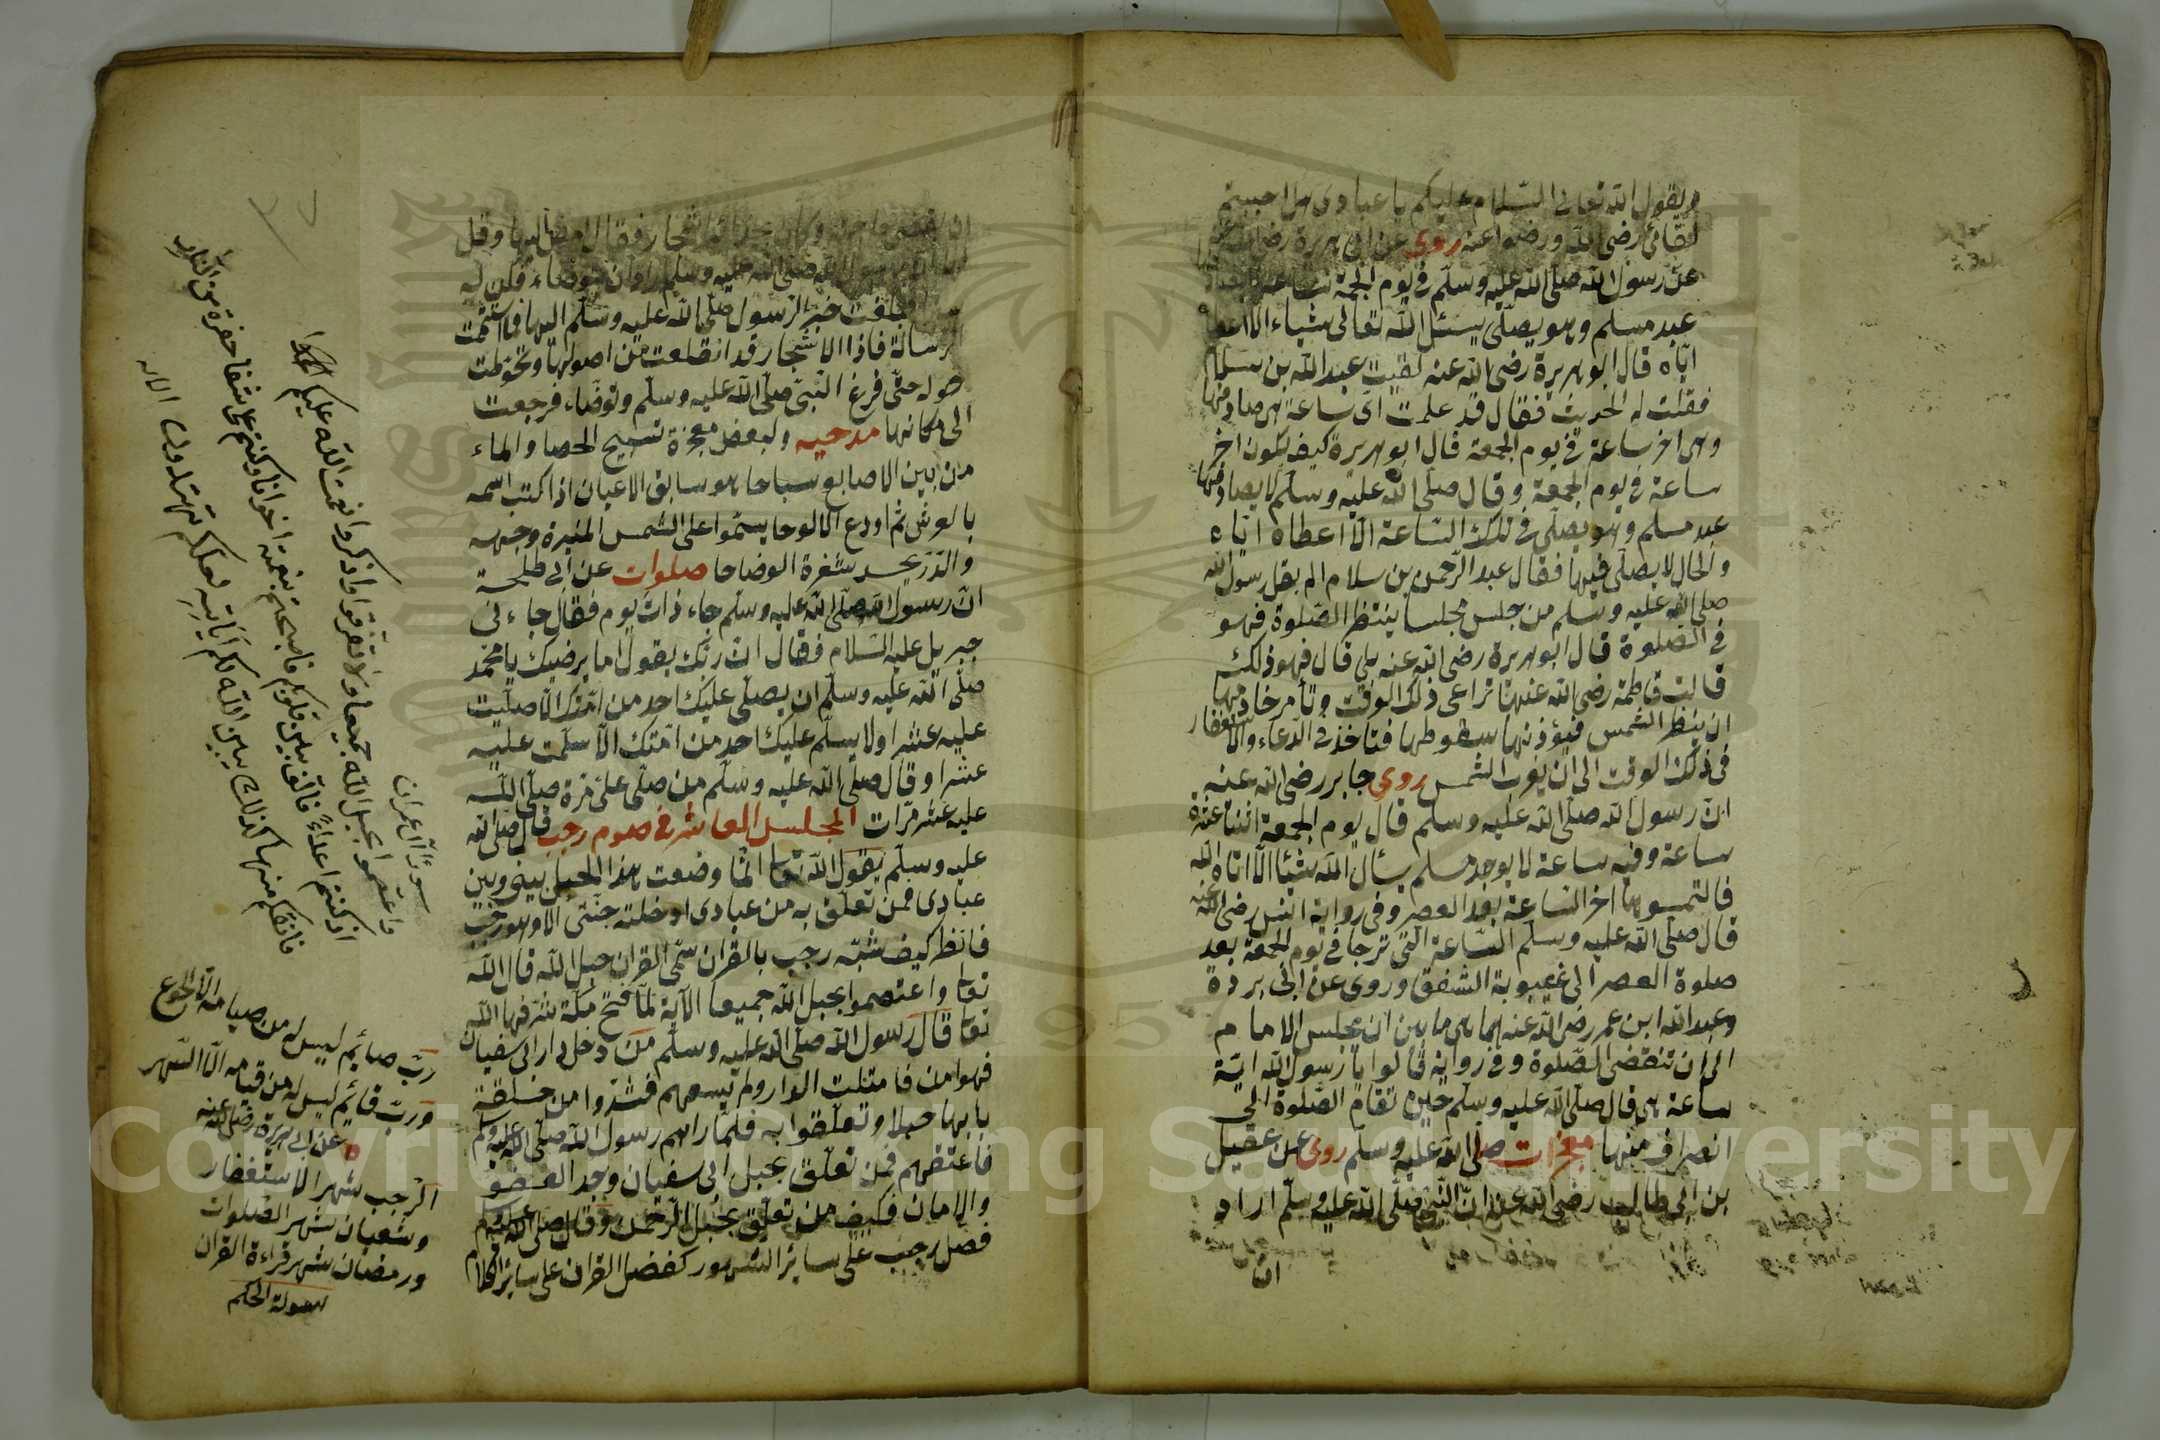 ويقول الله تعالى السلام عليكم يا عبادى هل احببتم
لقائى رضى الله ورضوا عنه روى عن ابى هريرة رضى الله
عن رسول الله صلى الله عليه وسلم فى يوم الجمعة ساعة
عبد مسلم وهو يصلى يسئل الله تعالى شياء الا اعطا
اياه قال ابو هريرة رضى الله عنه لقيت عبد الله بن سلام
فقلت له الحديث فقال قد علمت اى ساعة هى صادفها
وهى اخر ساعة فى يوم الجمعة قال ابو هريرة كيف يكون اخر
ساعة فى يوم الجمعة وقال صلى الله عليه وسلم لا يصادفها
عبد مسلم وهو يصلى فى تلك الساعة الا اعطاه اياه
والحال لا يصلى فيها فقال عبد الرحمن بن سلام الم يقل رسول الله
صلى الله عليه وسلم من جلس مجلسا ينتظر الصلوة فهو
فى الصلوة قال ابو هريرة رضى الله عنه بلى قال فهو ذلك
قالت فاطمة رضى الله عنها تراعى ذلك الوقت وتأمر خادمها
ان ينظر الشمس فيؤذنها سقوطها فتاخذ فى الدعاء والاستغفار
فى ذلك الوقت الى ان يغرب الشمس روى جابر رضى الله عنه
ان رسول الله صلى الله عليه وسلم قال يوم الجمعة اثنتا عشرة
ساعة وفيه ساعة لا يوجد مسلم يسأل الله شيئا الا اتاه الله
فالتمسوها اخر الساعة بعد العصر وفى رواية انس رضى الله عنه
قال صلى الله عليه وسلم الساعة التى ترجا فى يوم الجمعة بعد
صلوة العصر الى غيبوبة الشفق وروى عن ابى بردة
وعبد الله ابن عمر رضى الله عنهما هى ما بين ان يجلس الامام
الى ان تنقضى الصلوة وفى رواية قالوا يا رسول الله اية
ساعة هى قال صلى الله عليه وسلم حين تقام الصلوة الى
انصراف منها معجزات صلى الله عليه وسلم روى عن عقيل
بن ابى طالب رضى الله عنه ان النبى صلى الله عليه وسلم اراد
ان
ان وكان اشجار فقال امض اليها وقل
رسول الله صلى الله عليه وسلم ان يتوضاء فكن له
فبلغت خبر الرسول صلى الله عليه وسلم اليها فما استتمت
الرسالة فاذا الاشجار قد انقلعت من اصولها وتحوطت
حوله حتى فرغ النبى صلى الله عليه وسلم وتوضاء فرجعت
الى مكانها مدحيه ولبعض معجزة تسبيح الحصا والماء
من بين الاصابع سباحا هو سابق الاعيان اذا كتب اسمه
بالعرش ثم اودع الالوحا يسموا على الشمس المنيرة وجهه
والدر ثغرة الوضاحا صلوات عن ابى طلحة
ان رسول الله صلى الله عليه وسلم جاء ذات يوم فقال جاءنى
جبريل عليه السلام فقال ان ربك يقول اما يرضيك يا محمد
صلى الله عليه وسلم ان يصلى عليك احد من امتك الا صليت
عليه عشرا ولا يسلم عليك احد من امتك الا سلمت عليه
عشرا وقال صلى الله عليه وسلم من صلى على مرة صلى الله
عليه عشر مرات المجلس العاشر فى صوم رجب قال صلى الله
عليه وسلم يقول الله تعا انما وضعت هذا الحبل بينى وبين
عبادى فمن تعلق به من عبادى ادخلته جنتى الا وهو رجب
فانظر كيف شبه رجب بالقران سمى القران حبل الله قال الله
تعا واعتصموا بحبل الله جميعا الآية لما فتح مكة شرفها الله
تعا قال رسول الله صلى الله عليه وسلم من دخل دار ابى سفيان
فهو امن فامتلت الدار ولم يسعهم فشدوا من خلقة
بابها حبلا وتعلقوا به فلما راهم رسول الله صلى الله عليه وسلم
فاعتقهم فمن تعلق بحبل ابى سفيان وجد العضو
والامان فكيف من تعلق بحبل الرحمن وقال صلى الله عليه وسلم
فضل رجب على ساير الشهور كفضل القران على ساير الكلام
سورة آل عمران
واعتصموا بحبل الله جميعا ولا تفرقوا واذكروا نعمت الله عليكم
اذ كنتم اعداء فالف بين قلوبكم فاصبحتم بنعمته اخوانا وكنتم على شفا حفرة من النار
فانقذكم منها كذلك يبين الله لكم آياته لعلكم تهتدون الايه
رب صايم ليس له من صيامه الا الجوع
ورب قائم ليس له من قيامه الا السهر
عن ابى هريرة رضى الله عنه
الرجب شهر الاستغفار
وشعبان شهر الصلوات
ورمضان شهر قراءة القران
Copyright © King Saud University
1957